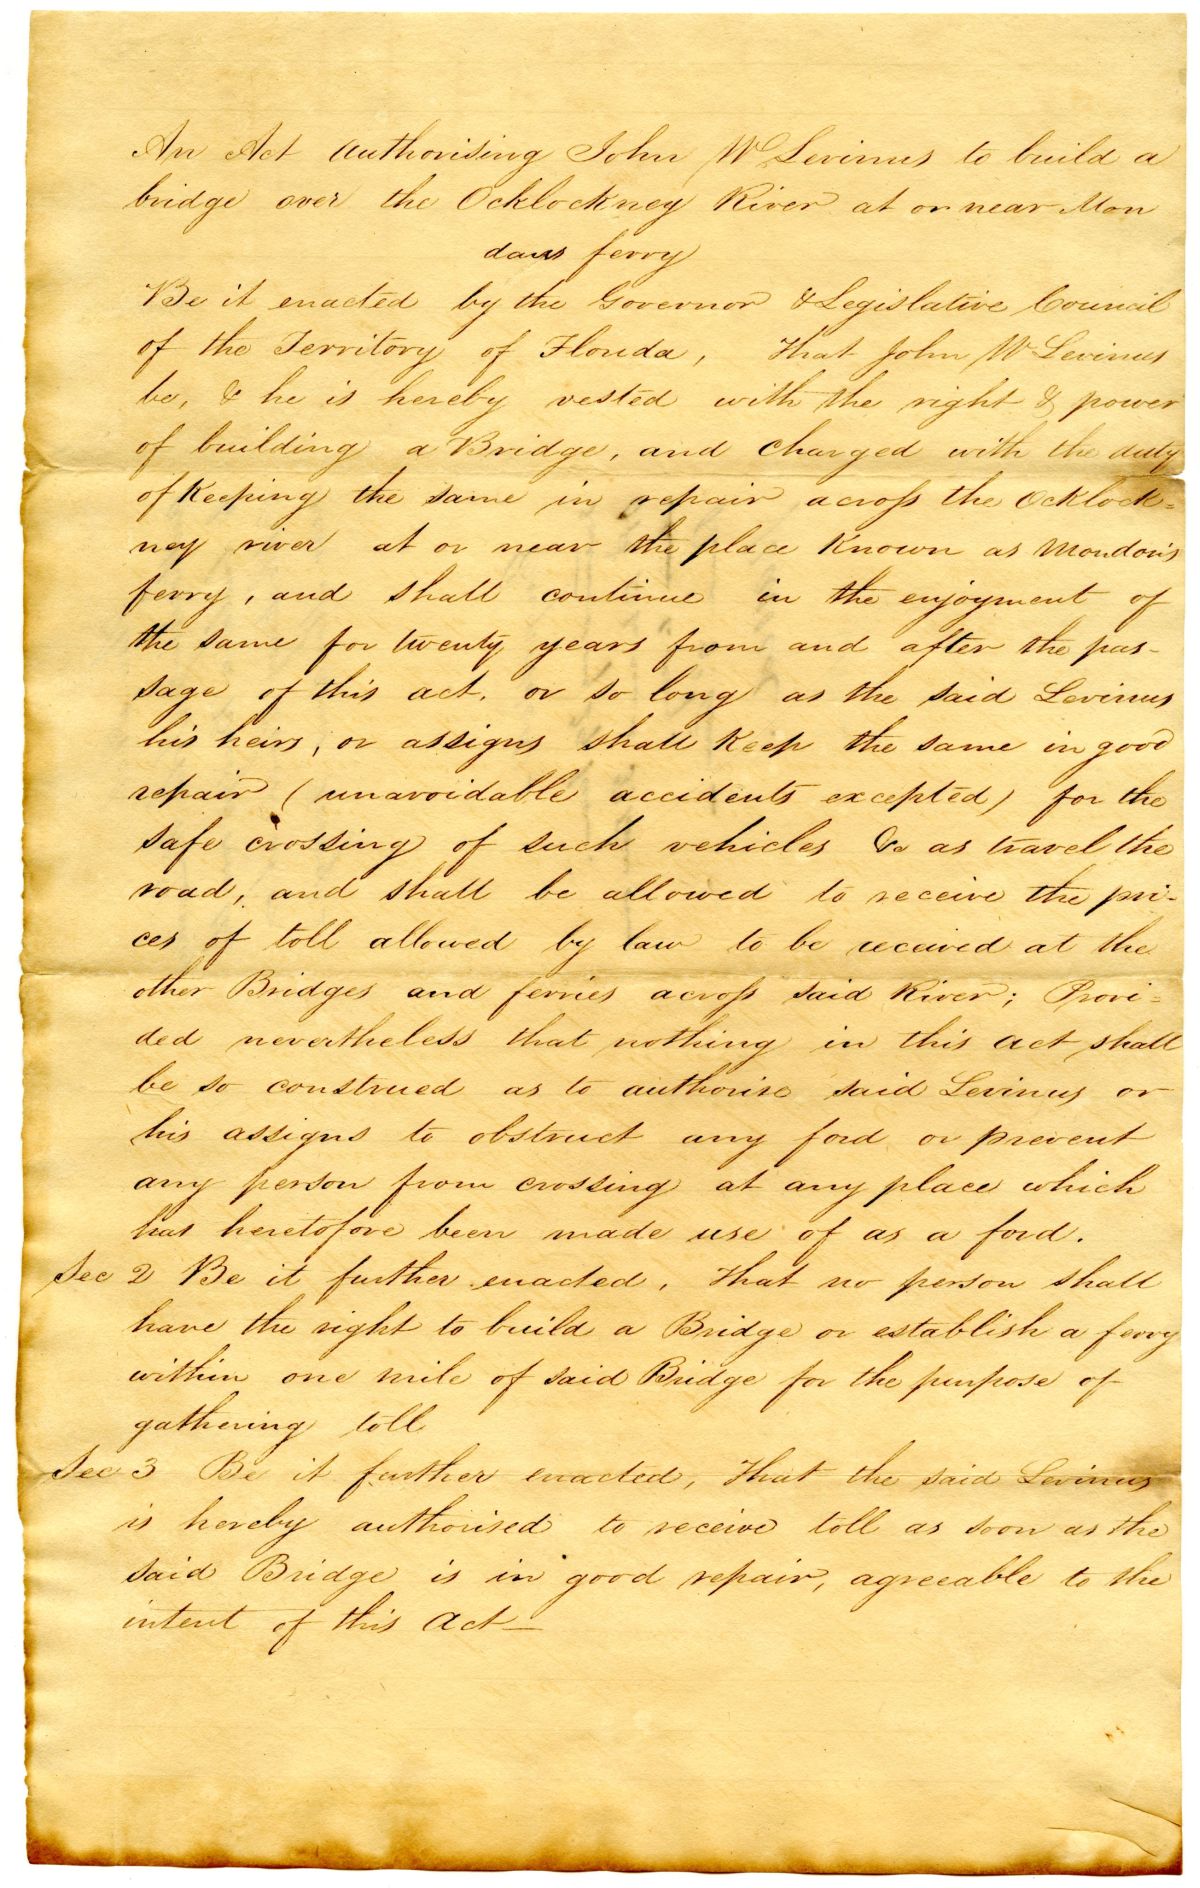 An Act authorising John W Levinus to build a
bridge over the Ocklockney River at or near Mon
dans ferry
Be it enacted by the Governor & Legislative Council
of the Territory of Florida, That John W Levinus
be, & he is hereby vested with the right & power
of building a Bridge, and charged with the duty
of Keeping the same in repair across the Ocklock=
ney river at or near the place Known as Mondon's
ferry, and shall continue in the enjoyment of
the same for twenty years from and after the pas-
sage of this act, or so long as the said Levinus
his heirs, or assigns shall Keep the same in good
repair (unavoidable accidents excepted) for the
safe crossing of such vehicles &c as travel the
road, and shall be allowed to receive the pri-
ces of toll allowed by law to be received at the
other Bridges and ferries across said River; Provi=
ded nevertheless that nothing in this act shall
be so construed as to authorise said Levinus or
his assigns to obstruct any ford or prevent
any person from crossing at any place which
has heretofore been made use of as a ford.
Sec 2 Be it further enacted, That no person shall
have the right to build a Bridge or establish a ferry
within one mile of said Bridge for the purpose of
gathering toll
Sec 3 Be it further enacted, That the said Levinus
is hereby authorised to receive toll as soon as the
said Bridge is in good repair, agreeable to the
intent of this Act—